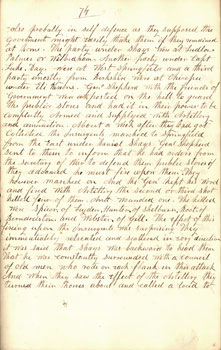 74
also probably in self defence as they supposed the
Government might hardly think them if they remained
at home. The party under Shays was at Ludlow
Palmer or Wilbraham. Another party under Capt
Luke Day was at West Springfield and a third
party mostly from Berkshire was at Chicopee
under Eli Parsons. Genl Shepherd with the friends of
government was assembled on the hill to guard
the public stores and had it in their power to be
completely armed and supplied with Artillery
and ammunition. About o clock after this had got
collected the Insurgents marched to Springfield
from the East under Daniel Shays. Genl Shepherd
sent to them to inform that he had orders from
the secretary of War to defend the public stores if
they advanced he must fire upon them. They
however marched on and the Genl kept his word
and fired with Artillery the second or third shot
killed four of them & wounded one. The killed
was Spicer of Leyden, Hunter of Shelburne, Root of
Bernardston and Webster of Gill. The effect of this
firing upon the Insurgents was surprising. They
immediately retreated and scattered in every direction
it was said that Shays was backwards to head them
that he was constantly surrounded with a council
of old men who rode on each flank in this attack
and when they saw the effect of the Artillery they
turned their horses about and called a loud to